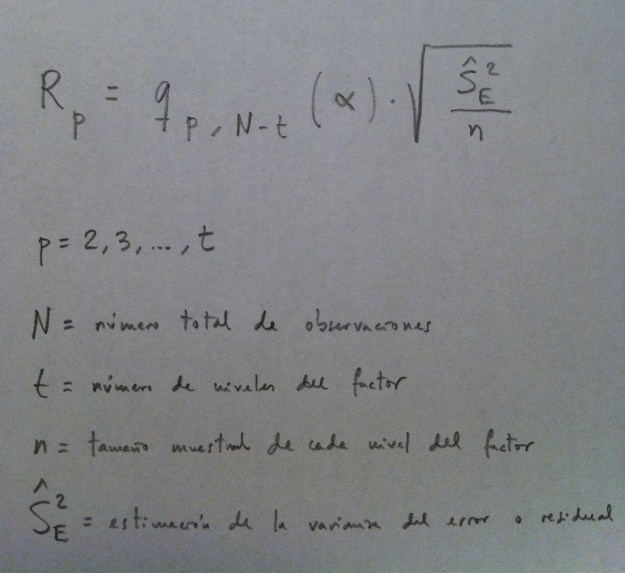 R_p = q_{p, N-t} (α) · √(Ŝ_E² / n)
p = 2, 3, ..., t
N = número total de observaciones
t = número de niveles del factor
n = tamaño muestral de cada nivel del factor
Ŝ_E² = estimación de la varianza del error o residual